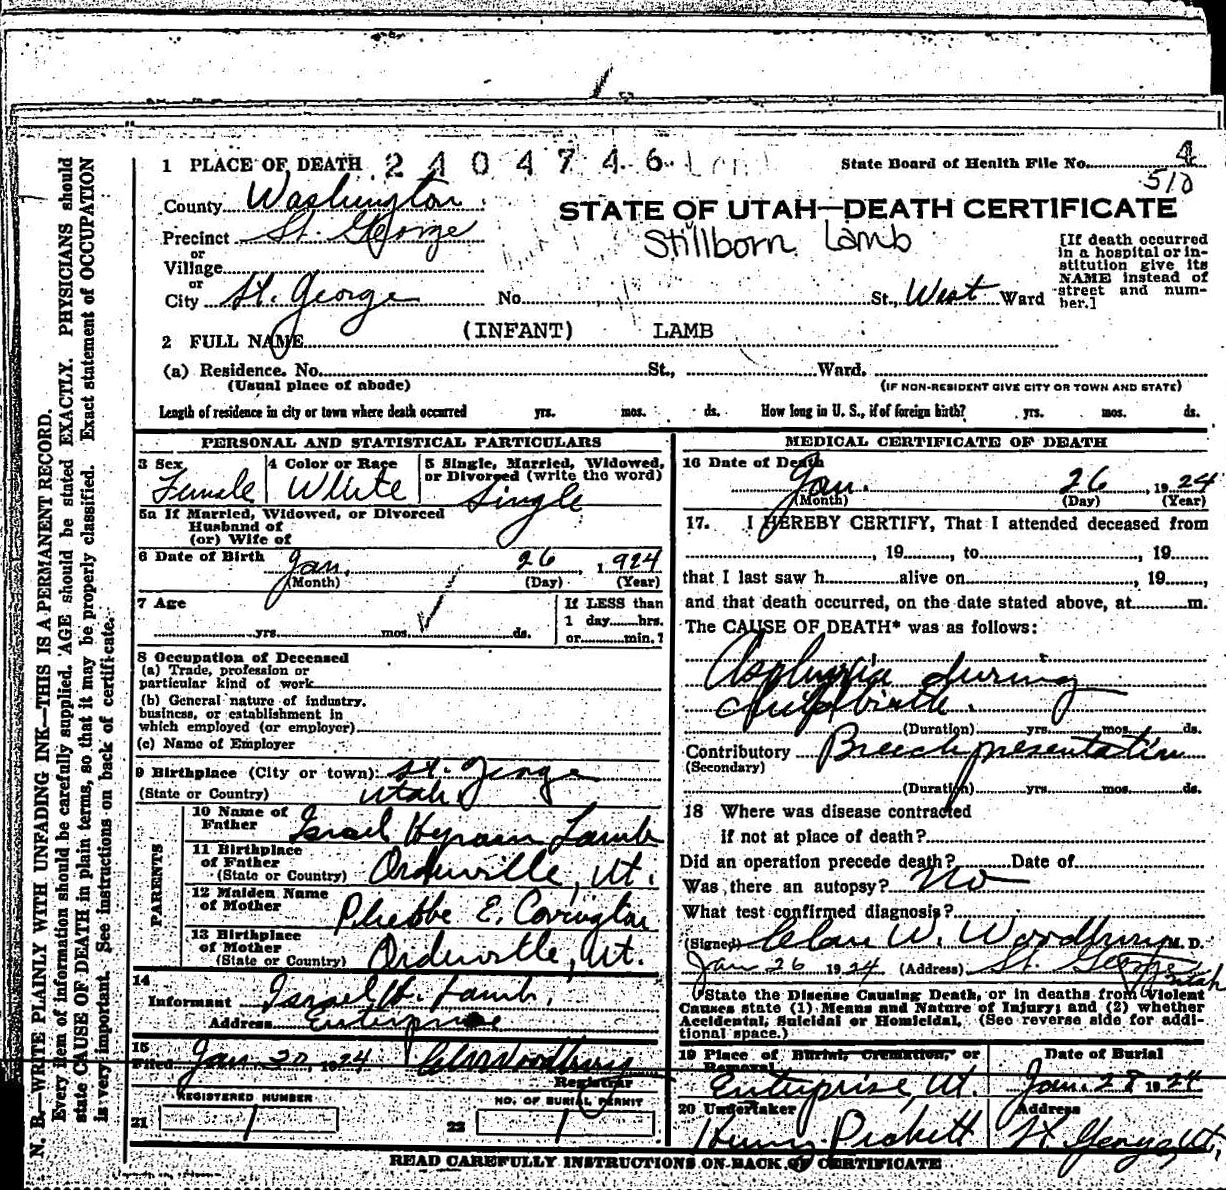 1 PLACE OF DEATH 2404746
State Board of Health File No. 4
510
County Washington
STATE OF UTAH—DEATH CERTIFICATE
Precinct St. George
Stillborn Lamb
or
Village
or
City St. George No. St., West Ward
[If death occurred
in a hospital or in-
stitution give its
NAME instead of
street and num-
ber.]
2 FULL NAME (INFANT) LAMB
(a) Residence. No. St., Ward.
(Usual place of abode) (IF NON-RESIDENT GIVE CITY OR TOWN AND STATE)
Length of residence in city or town where death occurred yrs. mos. ds. How long in U. S., if of foreign birth? yrs. mos. ds.
PERSONAL AND STATISTICAL PARTICULARS
3 Sex 4 Color or Race 5 Single, Married, Widowed,
or Divorced (write the word)
Female White Single
5a If Married, Widowed, or Divorced
Husband of
(or) Wife of
6 Date of Birth Jan. 26, 1924
(Month) (Day) (Year)
7 Age If LESS than
1 day hrs.
yrs. mos. ds. or min.?
8 Occupation of Deceased
(a) Trade, profession or
particular kind of work
(b) General nature of industry,
business, or establishment in
which employed (or employer)
(c) Name of Employer
9 Birthplace (City or town) St. George
(State or Country) Utah
PARENTS
10 Name of
Father Israel Hyrum Lamb
11 Birthplace
of Father
(State or Country) Orderville, Ut.
12 Maiden Name
of Mother Phebbe E. Covington
13 Birthplace
of Mother
(State or Country) Orderville, Ut.
14
Informant Israel H. Lamb.
Address Enterprise
15
Filed Jan 20, 1924 Clare W Woodbury
Registrar
REGISTERED NUMBER NO. OF BURIAL PERMIT
21 1 22 1
MEDICAL CERTIFICATE OF DEATH
16 Date of Death
Jan. 26, 1924
(Month) (Day) (Year)
17. I HEREBY CERTIFY, That I attended deceased from
, 19 , to , 19
that I last saw h alive on , 19 ,
and that death occurred, on the date stated above, at m.
The CAUSE OF DEATH* was as follows:
Asphyxia during
childbirth.
(Duration) yrs. mos. ds.
Contributory Breech presentation
(Secondary)
(Duration) yrs. mos. ds.
18 Where was disease contracted
if not at place of death?
Did an operation precede death? Date of
Was there an autopsy? No
What test confirmed diagnosis?
(Signed) Clare W. Woodbury M. D.
Jan 26 1924 (Address) St. George
Utah
State the Disease Causing Death, or in deaths from Violent
Causes state (1) Means and Nature of Injury; and (2) whether
Accidental, Suicidal or Homicidal. (See reverse side for addi-
tional space.)
19 Place of Burial, Cremation, or Date of Burial
Removal
Enterprise, Ut. Jan. 28 1924
20 Undertaker Address
Henry Pickett St. George, Ut.
READ CAREFULLY INSTRUCTIONS ON BACK OF CERTIFICATE
N. B.—WRITE PLAINLY WITH UNFADING INK—THIS IS A PERMANENT RECORD.
Every item of information should be carefully supplied. AGE should be stated EXACTLY. PHYSICIANS should
state CAUSE OF DEATH in plain terms, so that it may be properly classified. Exact statement of OCCUPATION
is very important. See instructions on back of certificate.